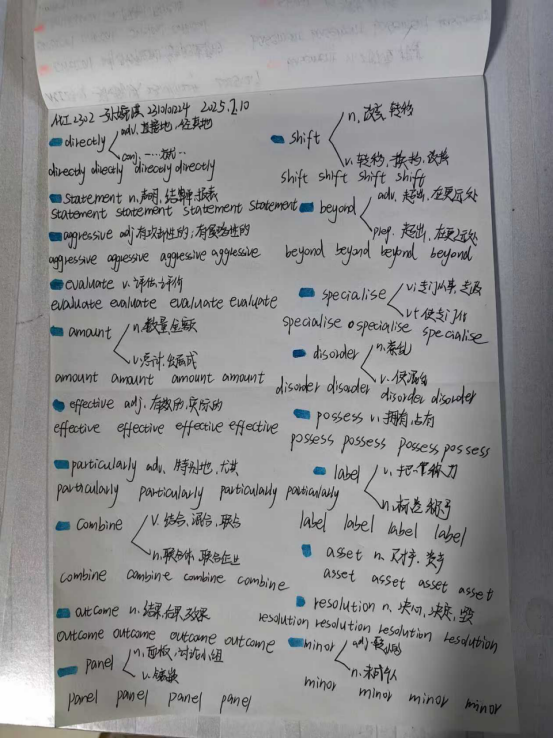 化工2302 231010224 2025.2.10
directly adv. 直接地,径直地
conj. 一……就…
directly directly directly directly
statement n. 声明,结算单,报表
statement statement statement statement
aggressive adj 有攻击性的;有侵略性的
aggressive aggressive aggressive aggressive
evaluate v. 评估,评价
evaluate evaluate evaluate evaluate
amount n. 数量,金额
v. 总计,
amount amount amount amount
effective adj. 有效的,实际的
effective effective effective effective
particularly adv. 特别地,尤其
particularly particularly particularly particularly
combine v. 结合,混合,联合
n. 联合体,联合企业
combine combine combine combine
outcome n. 结果,效果
outcome outcome outcome outcome
panel n. 面板,讨论小组
v. 镶嵌
panel panel panel panel
shift n. 改变,转移
v. 转移,
shift shift shift shift
beyond adv. 超出,在更远处
prep. 超出,在更远处
beyond beyond beyond beyond
specialise vi 专门从事,
vt 使专门化
specialise specialise specialise
disorder n. 紊乱
v. 使混乱
disorder disorder disorder disorder
possess v. 拥有,占有
possess possess possess possess
label v.
n. 标签,称号
label label label label
asset n. 财产,资产
asset asset asset asset
resolution n. 决心,决定,
resolution resolution resolution resolution
minor adj 较小的
n. 未成年人
minor minor minor minor